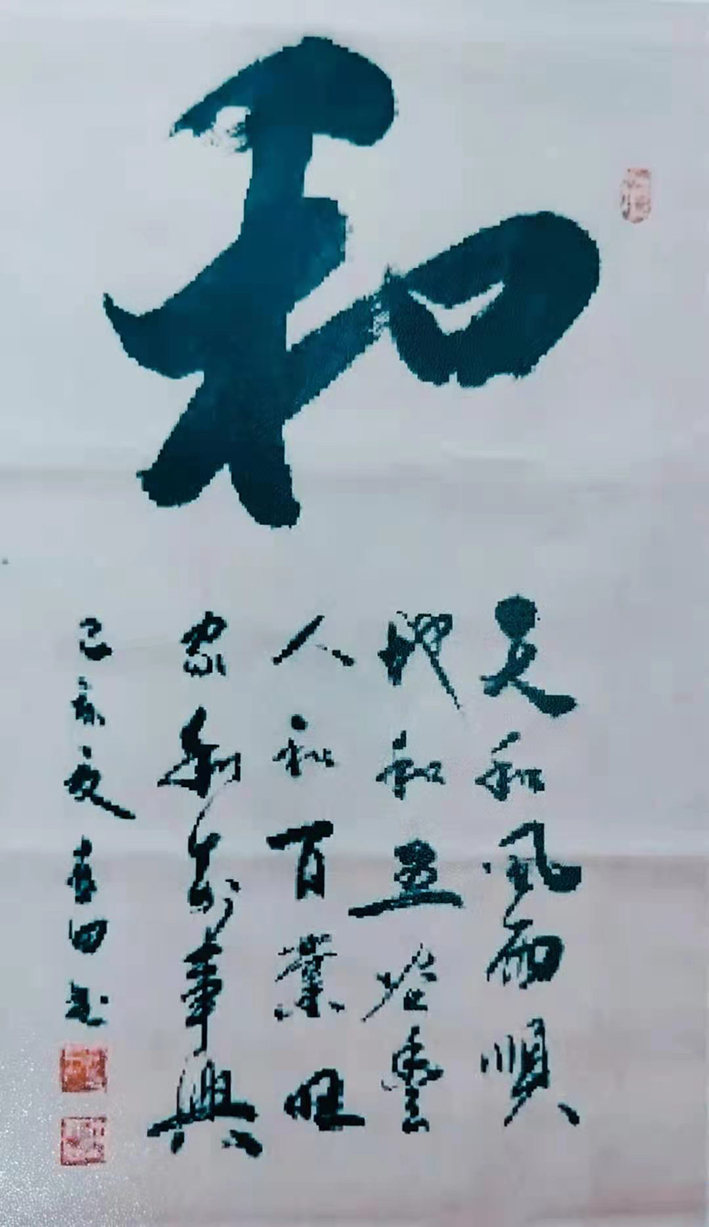 和
天和风雨順
地和五谷豐
人和百業旺
家和萬事興
己亥夏 田書